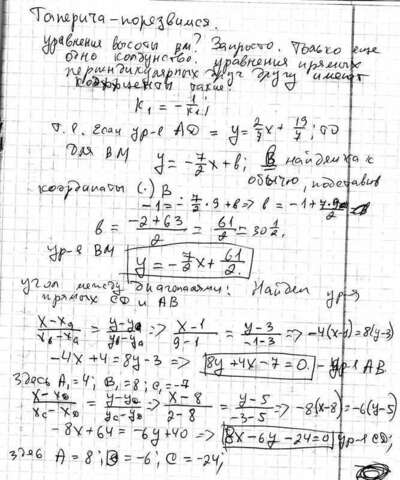 Таперича - порезвимся.
уравнения высоты BM? Запросто. Только еще
одно колдунство: уравнения прямых
перпендикулярных друг другу имеют
такие:
K₁ = -1/K
Т.е. если ур-е AD = y = 2/7x + 19/7; то
для BM y = -7/2x + b; B найдем как
обычно, подставив
координаты (·) B
-1 = -7/2 · 9 + b => b = -1 + 7·9/2 =
b = (-2+63)/2 = 61/2 = 30 1/2.
ур-е BM
y = -7/2x + 61/2.
угол между диагоналями: Найдем ур-я
прямых CD и AB
(x-xₐ)/(x_B-xₐ) = (y-yₐ)/(y_B-yₐ) => (x-1)/(9-1) = (y-3)/(-1-3) => -4(x-1) = 8(y-3)
-4x+4 = 8y-3 => 8y+4x-7=0. - ур-е AB
Здесь A₁=4; B₁=8; C₁=-7
(x-x_D)/(x_C-x_D) = (y-y_D)/(y_C-y_D) => (x-8)/(2-8) = (y-5)/(-3-5) => -8(x-8) = -6(y-5)
-8x+64 = -6y+40 => 8x-6y-24=0 ур-е CD;
здесь A=8; B=-6; C=-24;